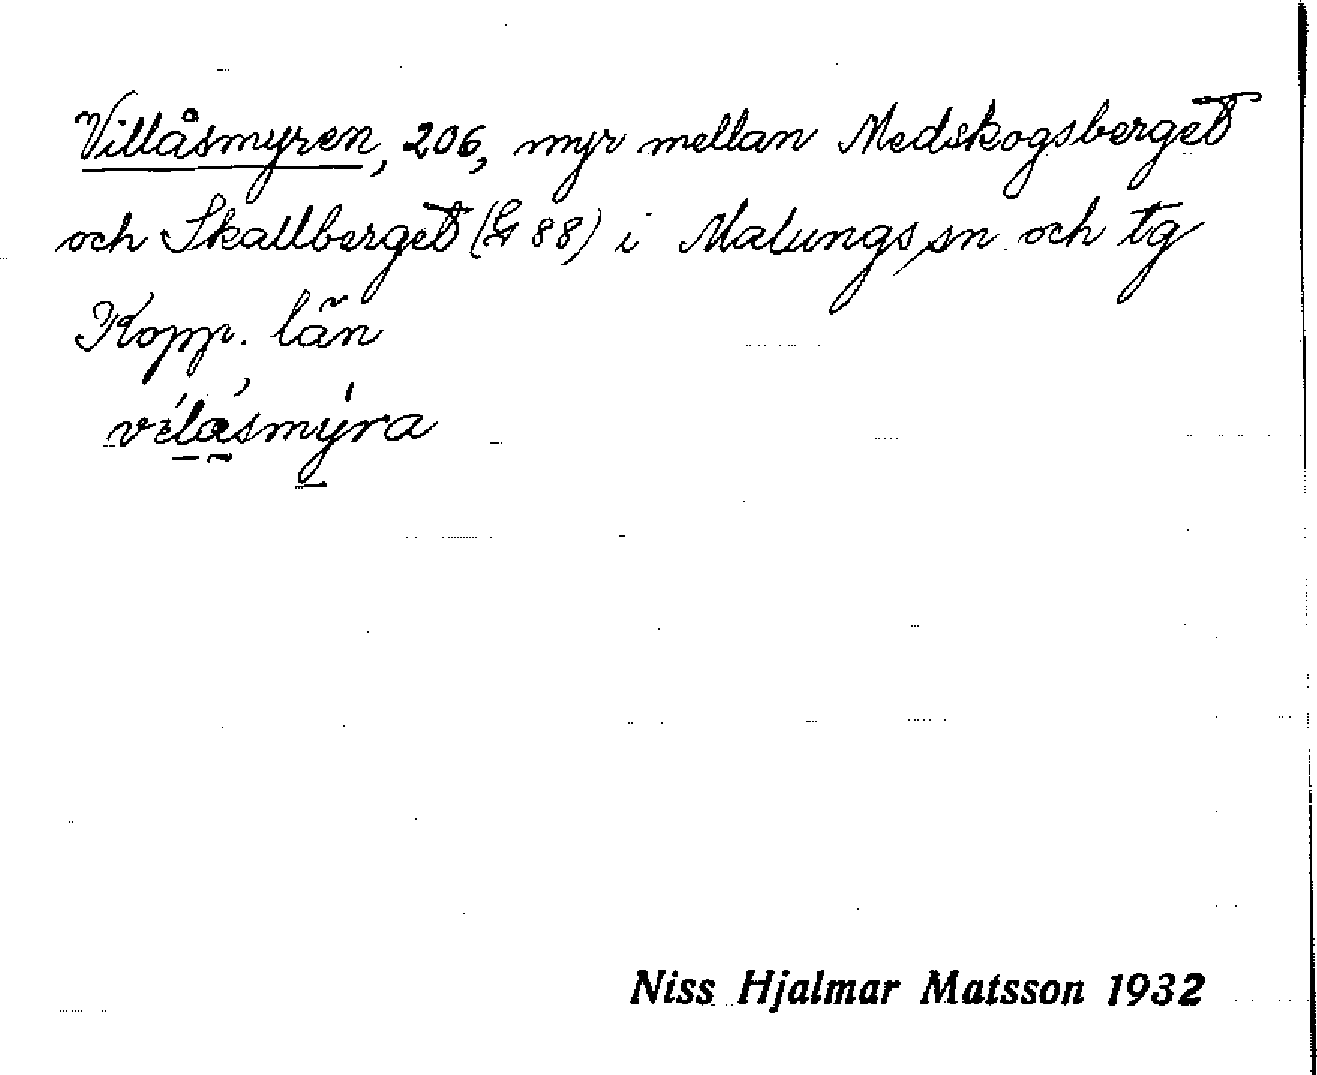 Villåsmyren, 206, myr mellan Medskogsberget
och Skallberget (G 88) i Malungs sn och tg
Kopp. län
vélåsmýra
Niss Hjalmar Matsson 1932